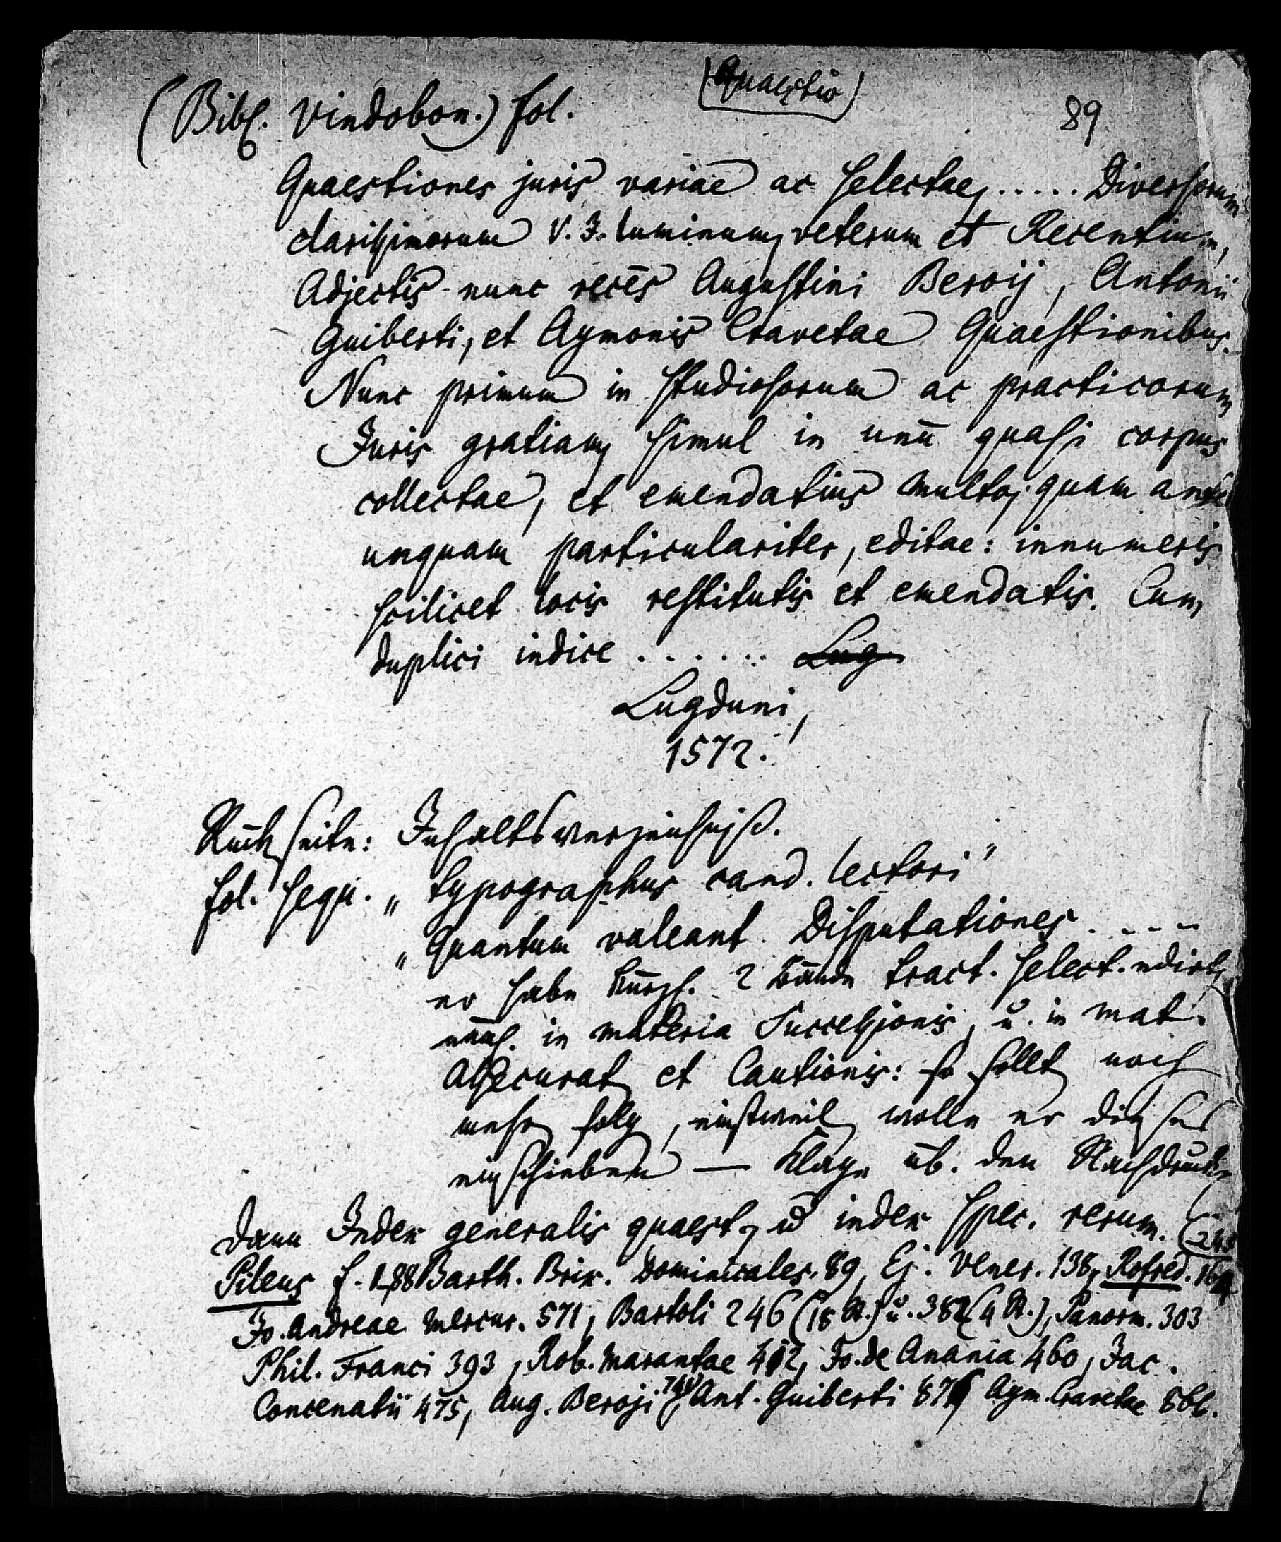 (Quaestio)
(Bibl. Vindobon.) fol. 89
Quaestiones juris variae ac selectae, ..... Diversorum
clarissimorum V. J. luminum, veterum et Recentium,
Adjectis nunc recēs Augustini Beroij, Antonii
Guiberti, et Aymonis Cravetae Quaestionibus.
Nunc primum in studiosorum ac practicorum
Juris gratiam simul in unū quasi corpus
collectae, et emendatius multo, quam antè
unquam particulariter, editae: innumeris
scilicet locis restitutis et emendatis. Cum
duplici indice ...... Lug
Lugduni,
1572.
Rückseite: Inhaltsverzeichniß.
fol. sequ. „typographus cand. lectori"
„Quantum valeant Disputationes .....
er habe kürzl. 2 Bände tract. select. edirt,
nāml. in materia Successionis, u. in mat.
Assecurat, et Cautionis: so sollt noch
mehr folg, einstweil wolle er dieses
einschieben — Klage üb. den Nachdruck
Dann Index generalis quaest, u index spec. rerum.
Pileus f. 1, 88 Barth. Brix. Dominicales 89, Ej. Vener. 138, Rofred. 164
Jo. Andreae Mercur. 571, Bartoli 246 (18 Q.) u. 382 (4 Q.), Panorm. 303
Phil. Franci 393, Rob. Marantae 412, Jo. de Anania 460, Jac.
Concenatii 475, Aug. Beroji Ant. Guiberti Aym. Cravetae 866.